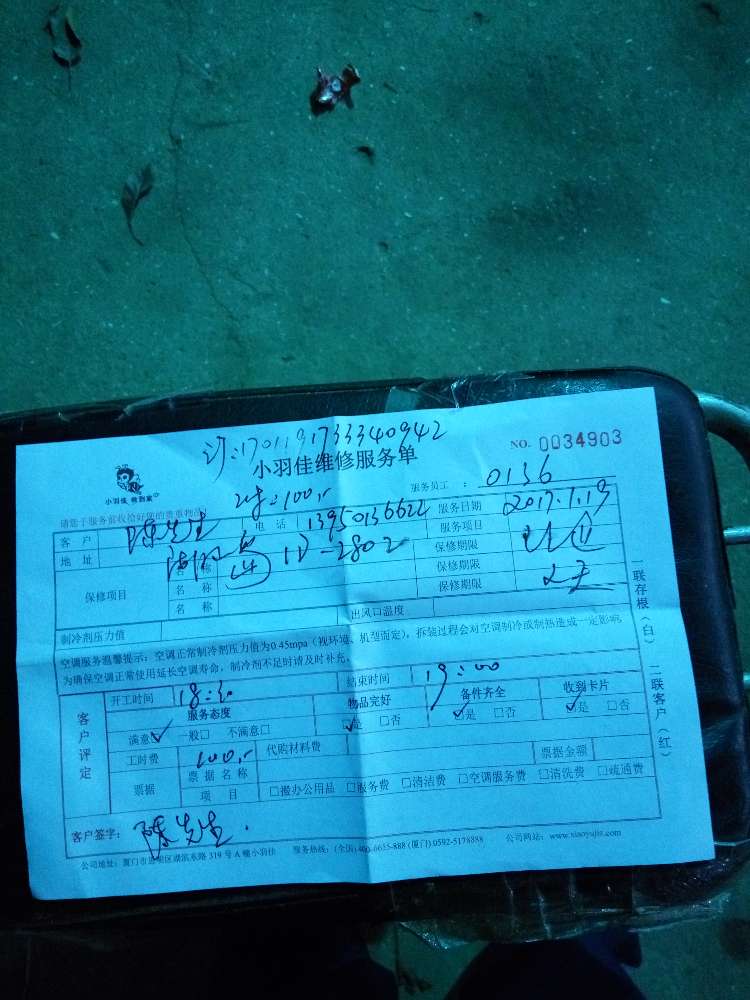 订:17011917333340942
小羽佳维修服务单
NO. 0034903
小羽佳 收到家
请您于服务前收拾好您的贵重物品!
服务员工 : 0136
客户 陈先生 电话 13950136622 服务日期 2017.1.19
地址 服务项目
保修项目 名称 保修期限
名称 保修期限
名称 保修期限
制冷剂压力值 出风口温度
空调服务温馨提示:空调正常制冷剂压力值为0.45mpa(视环境、机型而定),拆装过程会对空调制冷或制热造成一定影响
为确保空调正常使用延长空调寿命,制冷剂不足时请及时补充。
一联存根(白) 二联客户(红)
客户评定
开工时间 结束时间 19:00
服务态度 物品完好 备件齐全 收到卡片
满意✓ 一般□ 不满意□ ✓是 □否 ✓是 □否 ✓是 □否
工时费 100,- 代购材料费
票据 票据名称 票据金额
项目 □搬办公用品 □服务费 □清洁费 □空调服务费 □清洗费 □疏通费
客户签字: 陈先生.
公司地址:厦门市思明区湖滨东路 319 号 A 幢小羽佳 服务热线:(全国)400-6655-888 (厦门) 0592-5178888 公司网站:www.xiaoyujia.com